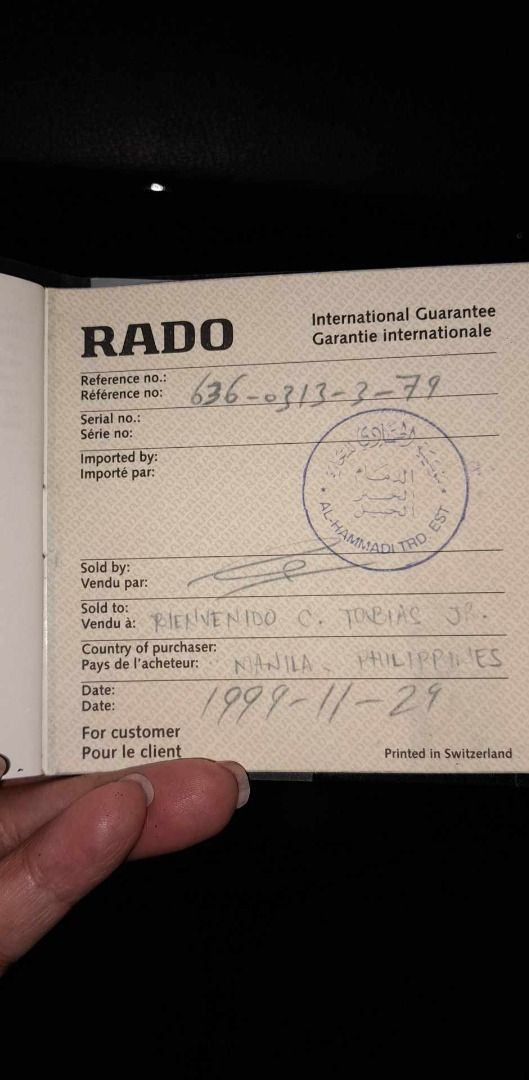 RADO
International Guarantee
Garantie internationale
Reference no.:
Référence no: 636-0313-3-79
Serial no.:
Série no:
Imported by:
Importé par:
الدمام
الخبر
الجبيل
AL-HAMMADI TRD. EST
Sold by:
Vendu par:
Sold to:
Vendu à: BIENVENIDO C. TOBIAS JR.
Country of purchaser:
Pays de l'acheteur: MANILA, PHILIPPINES
Date:
Date: 1999-11-29
For customer
Pour le client
Printed in Switzerland